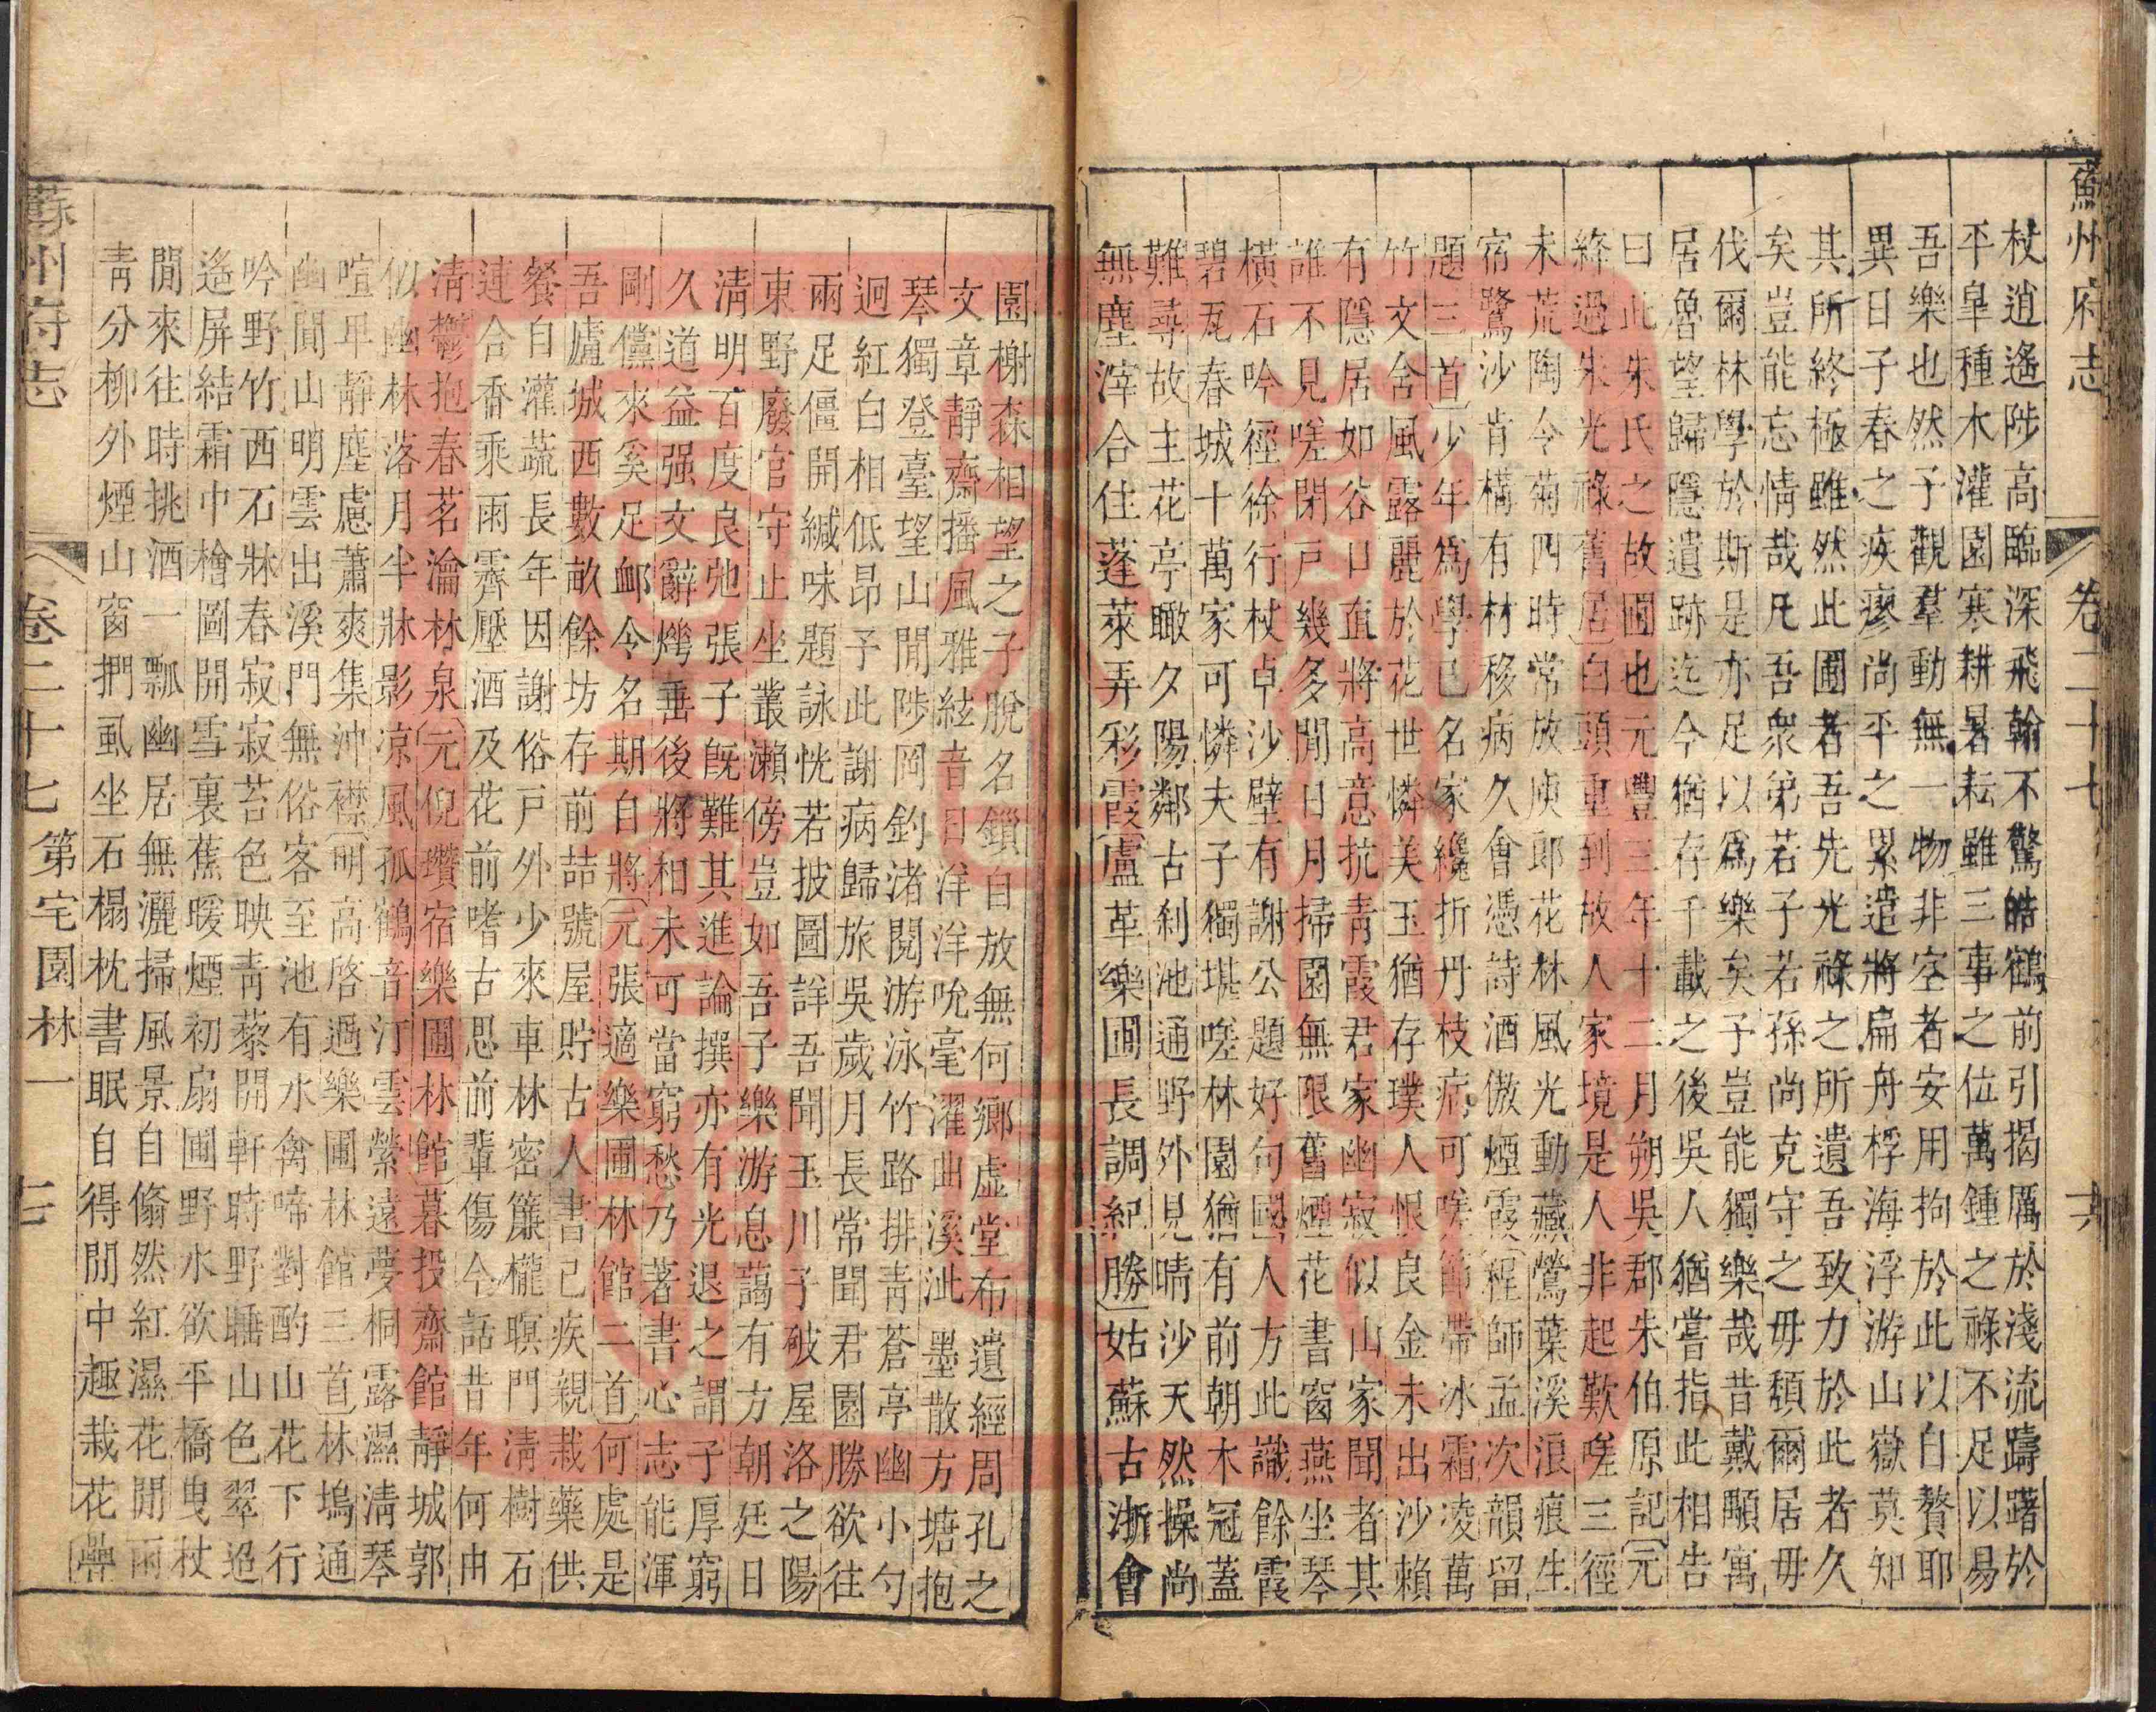 蘇州府志 卷二十七 六
杖逍遙陟高臨深飛翰不驚皓鶴前引揭厲於淺流躊躇於
平皐種木灌園寒耕暑耘雖三事之位萬鍾之祿不足以易
吾樂也然予觀羣動無一物非空者安用拘於此以自贅耶
異日子春之疾瘳尚平之累遣將扁舟桴海浮游山嶽莫知
其所終極雖然此圃者吾先光祿之所遺吾致力於此者久
矣豈能忘情哉凡吾衆弟若子若孫尚克守之毋頹爾居毋
伐爾林學於斯是亦足以爲樂矣予豈能獨樂哉昔戴顒寓
居魯望歸隱遺跡迄今猶存千載之後吳人猶嘗指此相告
曰此朱氏之故圃也元豐三年十二月朔吳郡朱伯原記元
絳過朱光祿舊居白頭重到故人家境是人非起歎嗟三徑
未荒陶令菊四時常放庾郎花林風光動藏鶯葉溪浪痕生
宿鷺沙肯構有材移病久會憑詩酒傲煙霞程師孟次韻留
題三首少年爲學已名家纔折丹枝病可嗟節帶冰霜凌萬
竹文舍風露麗於花世憐美玉猶存璞人恨良金未出沙賴
有隱居如谷口直將高意抗青霞君家幽寂似山家聞者其
誰不見嗟閉戸幾多閒日月掃園無限舊煙花書窗燕坐琴
橫石吟徑徐行杖卓沙壁有謝公題好句國人方此識餘霞
碧瓦春城十萬家可憐夫子獨堪嗟林園猶有前朝木冠蓋
難尋故主花亭瞰夕陽鄰古刹池通野外見晴沙天然操尚
無塵滓合住蓬萊弄彩霞盧革樂圃長調紀勝姑蘇古浙會
園榭森相望之子脫名鎖自放無何鄉虛堂布遺經周孔之
文章靜齋播風雅絃音日洋洋吮毫濯曲溪泚墨散方塘抱
琴獨登臺望山閒陟岡釣渚閱游泳竹路排青蒼亭幽小勺
迴紅白相低昂予此謝病歸旅吳歲月長常聞君園勝欲往
兩足僵開緘味題詠恍若披圖詳吾聞玉川子破屋洛之陽
東野廢官守止坐叢瀨傍豈如吾子樂游息藹有方朝廷日
清明百度良弛張子旣難其進論撰亦有光退之謂子厚窮
久道益强文辭燁垂後將相未可當窮愁乃著書心志能渾
剛儻來奚足卹今名期自將元張適樂圃林館二首何處是
吾廬城西數畝餘坊存前喆號屋貯古人書已疾親栽藥供
餐自灌蔬長年因謝俗戸外少來車林密簾櫳暝門清樹石
連合香乘雨霽壓酒及花前嗜古思前輩傷今話昔年何由
清鬱抱春茗瀹林泉元倪瓚宿樂圃林館暮投齋館靜城郭
似幽林落月半牀影凉風孤鶴音汀雲縈遠夢桐露濕清琴
喧卑靜塵慮蕭爽集沖襟明高啓過樂圃林館三首林塢通
幽閒山明雲出溪門無俗客至池有水禽啼對酌山花下行
吟野竹西石牀春寂寂苔色映青藜開軒時野睡山色翠迢
遙屏結霜中檜圖開雪裏蕉暖煙初扇圃野水欲平橋曳杖
閒來往時挑酒一瓢幽居無灑掃風景自翛然紅濕花閒雨
青分柳外煙山窗捫虱坐石榻枕書眠自得閒中趣栽花
蘇州府志 卷二十七 第宅園林一 七